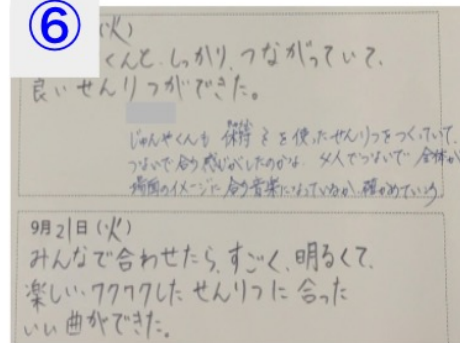 ⑥
(火)
くんと、しっかり、つながっていて、
良いせんりつができた。
じゅんやくんも 保持 ミを使ったせんりつをつくっていて、
つないで合う感じがしたのかな。4人でつないで 全体が
場面のイメージに合う音楽になっているか、確かめていこう
9月21日(火)
みんなで合わせたら、すごく、明るくて、
楽しい、ワクワクした せんりつに合った
いい曲ができた。